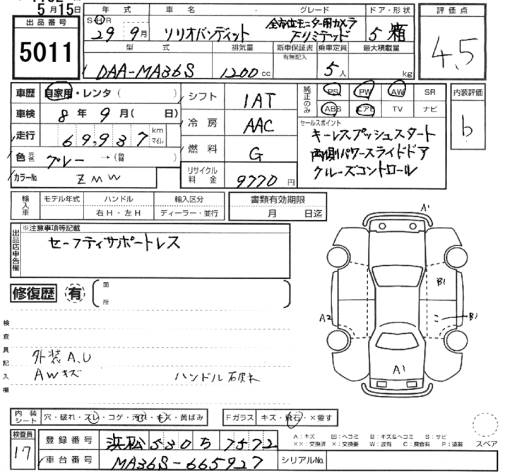 5月15日
出品番号
5011
年式 車名 グレード ドア・形状
S H R
29年 9月 ソリオバンディット 全方位モニター用カメラ ナシリミテッド 5 箱
型式 排気量 新車保証書 有無記入 乗定員 最大積載量
DAA-MA36S 1200cc 5人 kg
評価点
4.5
車歴 自家用・レンタ( ) シフト 1AT 純正のみ PS PW AW SR
ABS エアB TV ナビ
内装評価
b
車検 8年 9月( 日) 冷房 AAC
走行 69,937 km マイル 燃料 G
色 グレー →(替 )
カラーNo ZMW リサイクル料金 9770円
セールスポイント
キーレスプッシュスタート
両側パワースライドドア
クルーズコントロール
輸入車 モデル年式 ハンドル 右H・左H 輸入区分 ディーラー・並行
書類有効期限
月 日迄
出品店申告欄
※注意事項等記載
セーフティサポートレス
修復歴 有 箇所
検査員記入欄
外装A.U
AWキズ
ハンドル
A1
A2
B1
B1
A1
内装シート 穴・破れ・スレ・コゲ・汚れ・キズ・黄ばみ Fガラス キズ・飛石・×歪す
A:キズ B:キズ&ヘコミ S:サビ
XX:交換済 X:交換要 W:波有 C:腐食 P:塗装
スペア
検査員
17
登録番号 浜松 530 ち 7572
車台番号 MA36S-665927 シリアルNo.